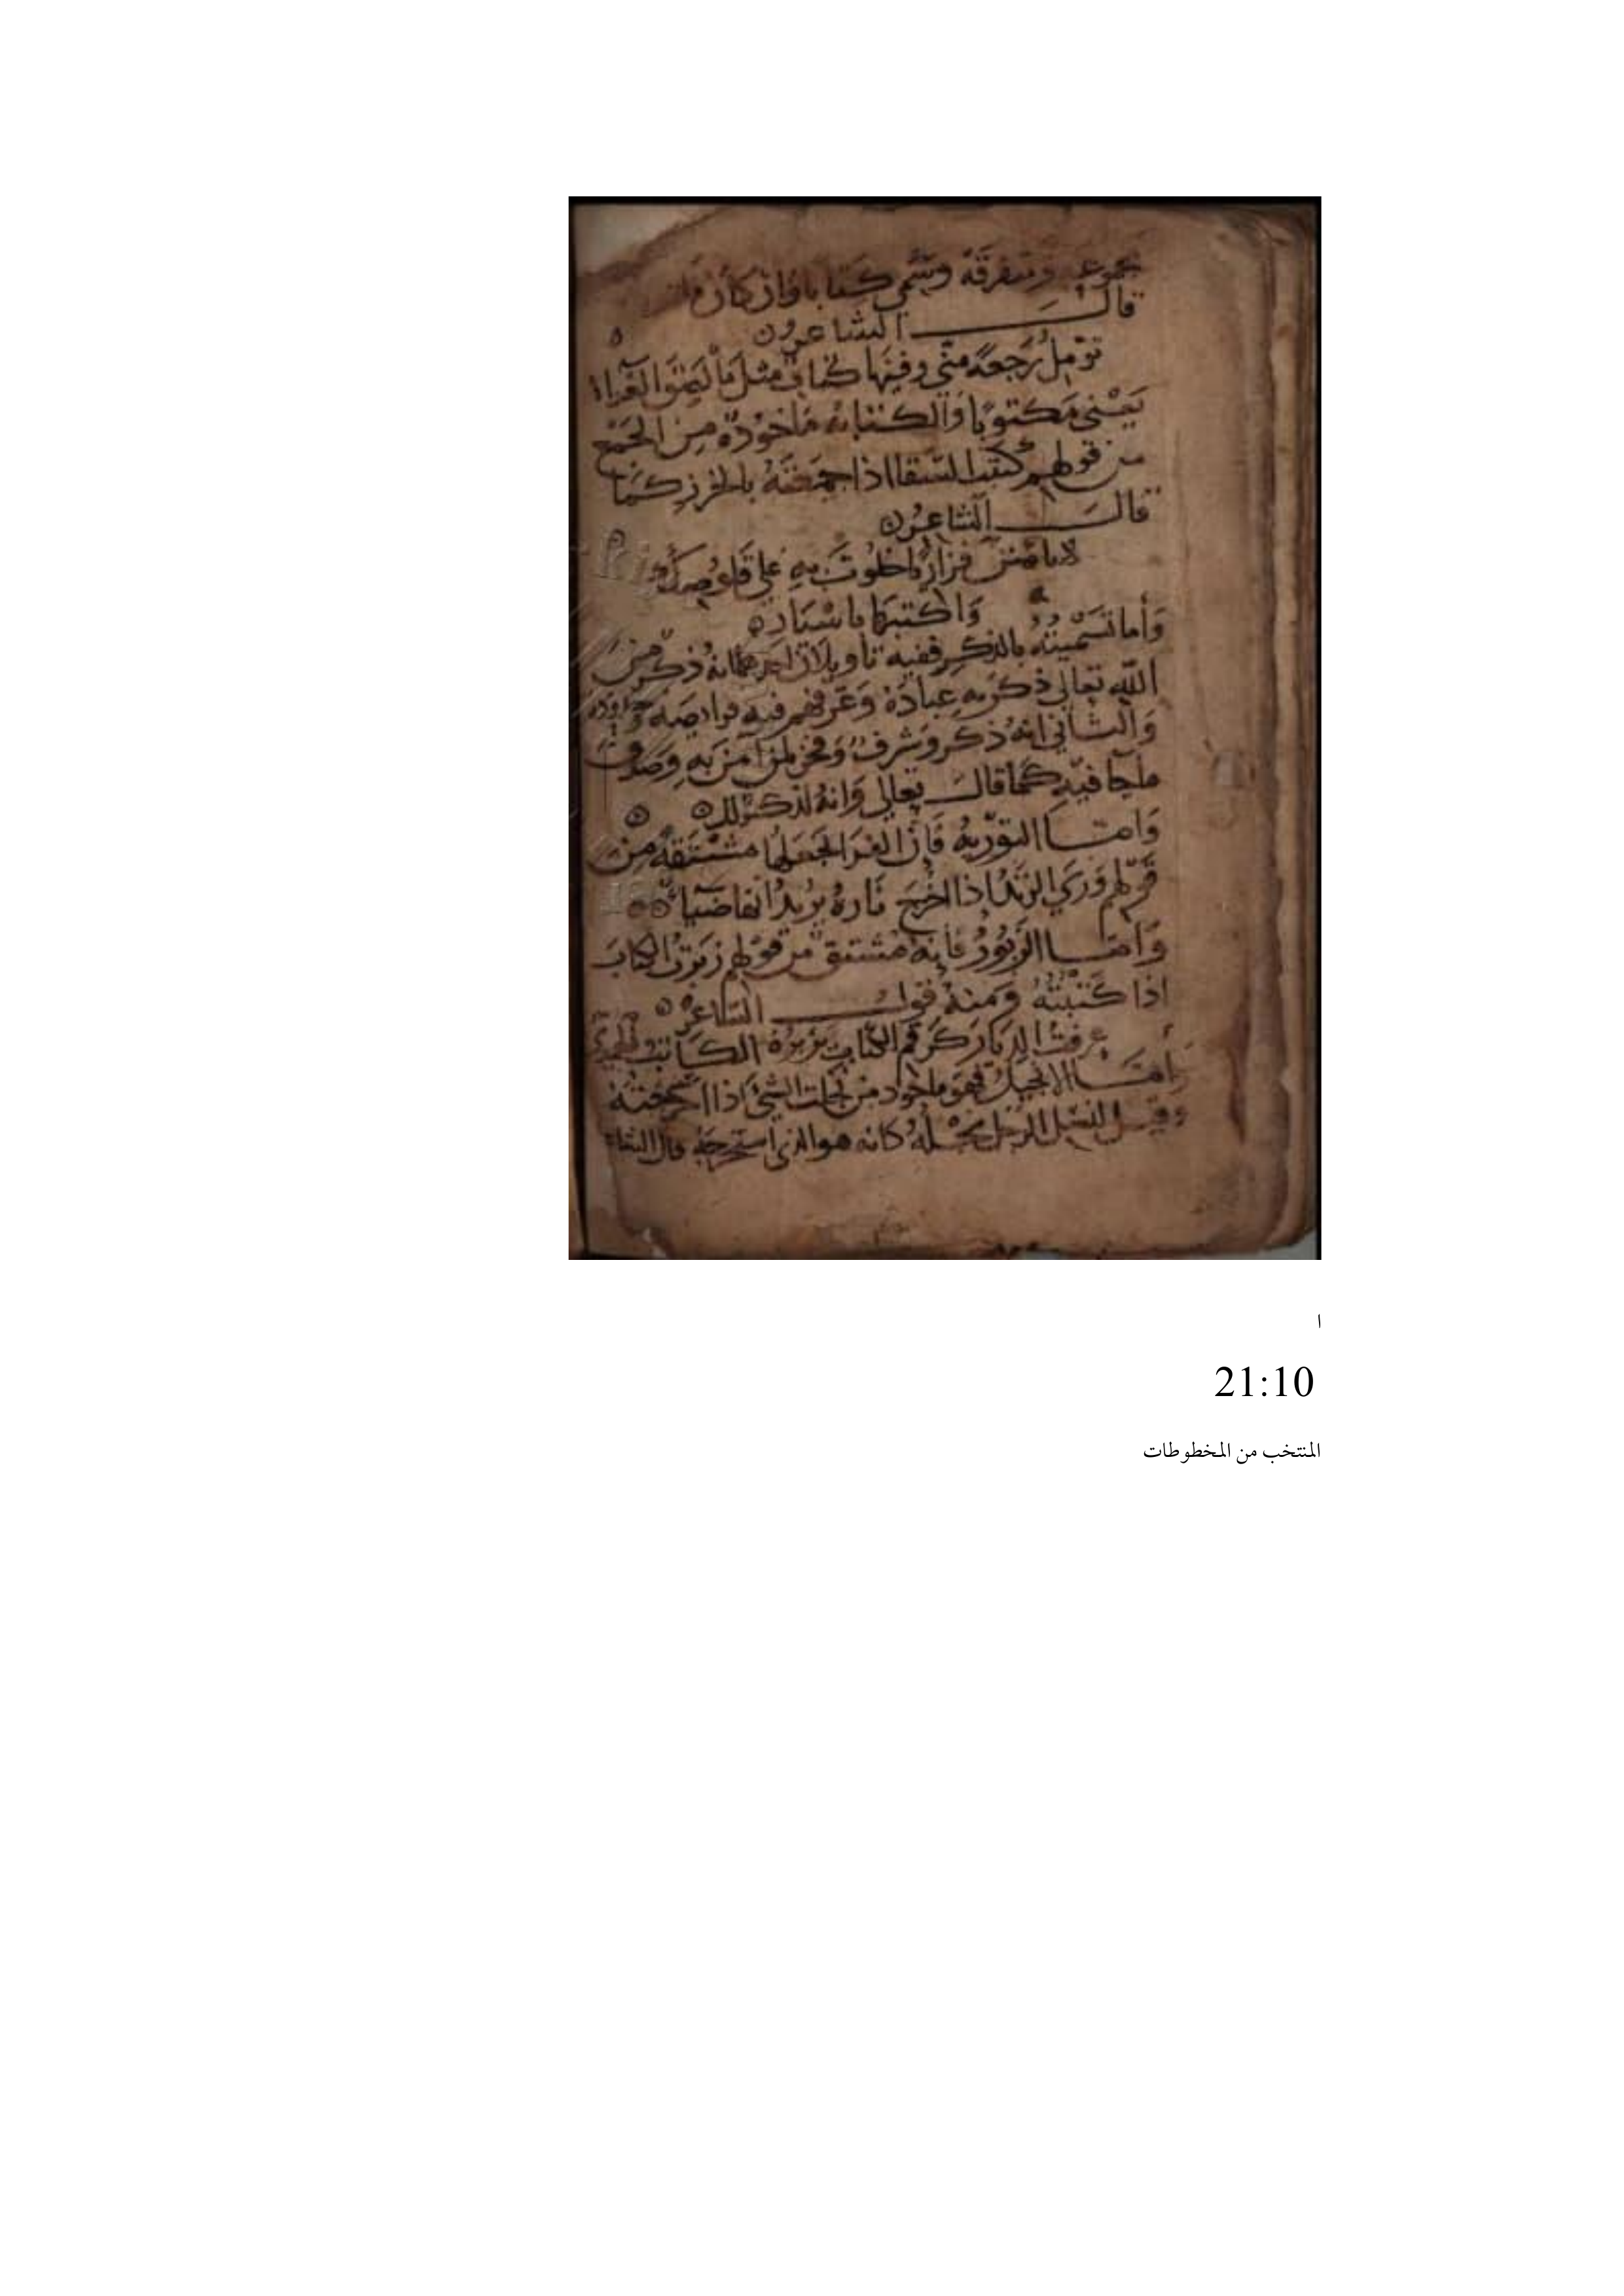 مجموعة ومتفرقة وتسمى كتابا وان كان
قال الشاعر ن
تؤمل رجعة مني وفيها كتاب مثل ما لصق الغراء
يعني مكتوبا والكتابة ماخوذة من الجمع
من قولهم كتبت السقا اذا جمعته بالخرز كما
قال الشاعر ن
لا تامنن فزاريا خلوت به على قلوصك
واكتبها باسيار
وأما تسميته بالذكر ففيه تاويلان احدهما انه ذكر من
الله تعالى ذكر به عباده وعرفهم فيه فرايضه وحدوده
والثاني انه ذكر وشرف وفخر لمن آمن به وصدق
ما جا فيه كما قال تعالى وانه لذكر لك
وامـا التورية فان الفرا يجعلها مشتقة من
قولهم وري الزند اذا اخرج ناره يريد انها ضياء
وامـا الزبور فانه مشتق من قولهم زبرت الكتاب
اذا كتبته ومنه قول الشاعر
عرفت الديار كرقم الكتاب يزبره الكاتب الحميري
وامـا الانجيل فهو ماخوذ من نجلت الشئ اذا اخرجته
وقيل لنسل الرجل نجله كانه هو الذي استخرجه قال الشا
ا
21:10
المنتخب من المخطوطات